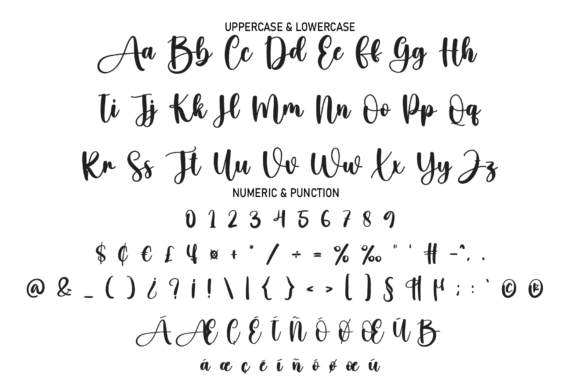 UPPERCASE & LOWERCASE
Aa Bb Cc Dd Ee Ff Gg Hh
Ii Jj Kk Ll Mm Nn Oo Pp Qq
Rr Ss Tt Uu Vv Ww Xx Yy Zz
NUMERIC & PUNCTION
0 1 2 3 4 5 6 7 8 9
$ ¢ € £ ¥ ¤ + * / ÷ = % ‰ " ' # ~ ^ . .
@ & _ ( ) ¿ ? ¡ ! \ | { } < > [ ] § ¶ µ ; : ` © ®
Á Æ Ç É Í Ñ Ó Ø Œ Ú ß
á æ ç é í ñ ó ø œ ú